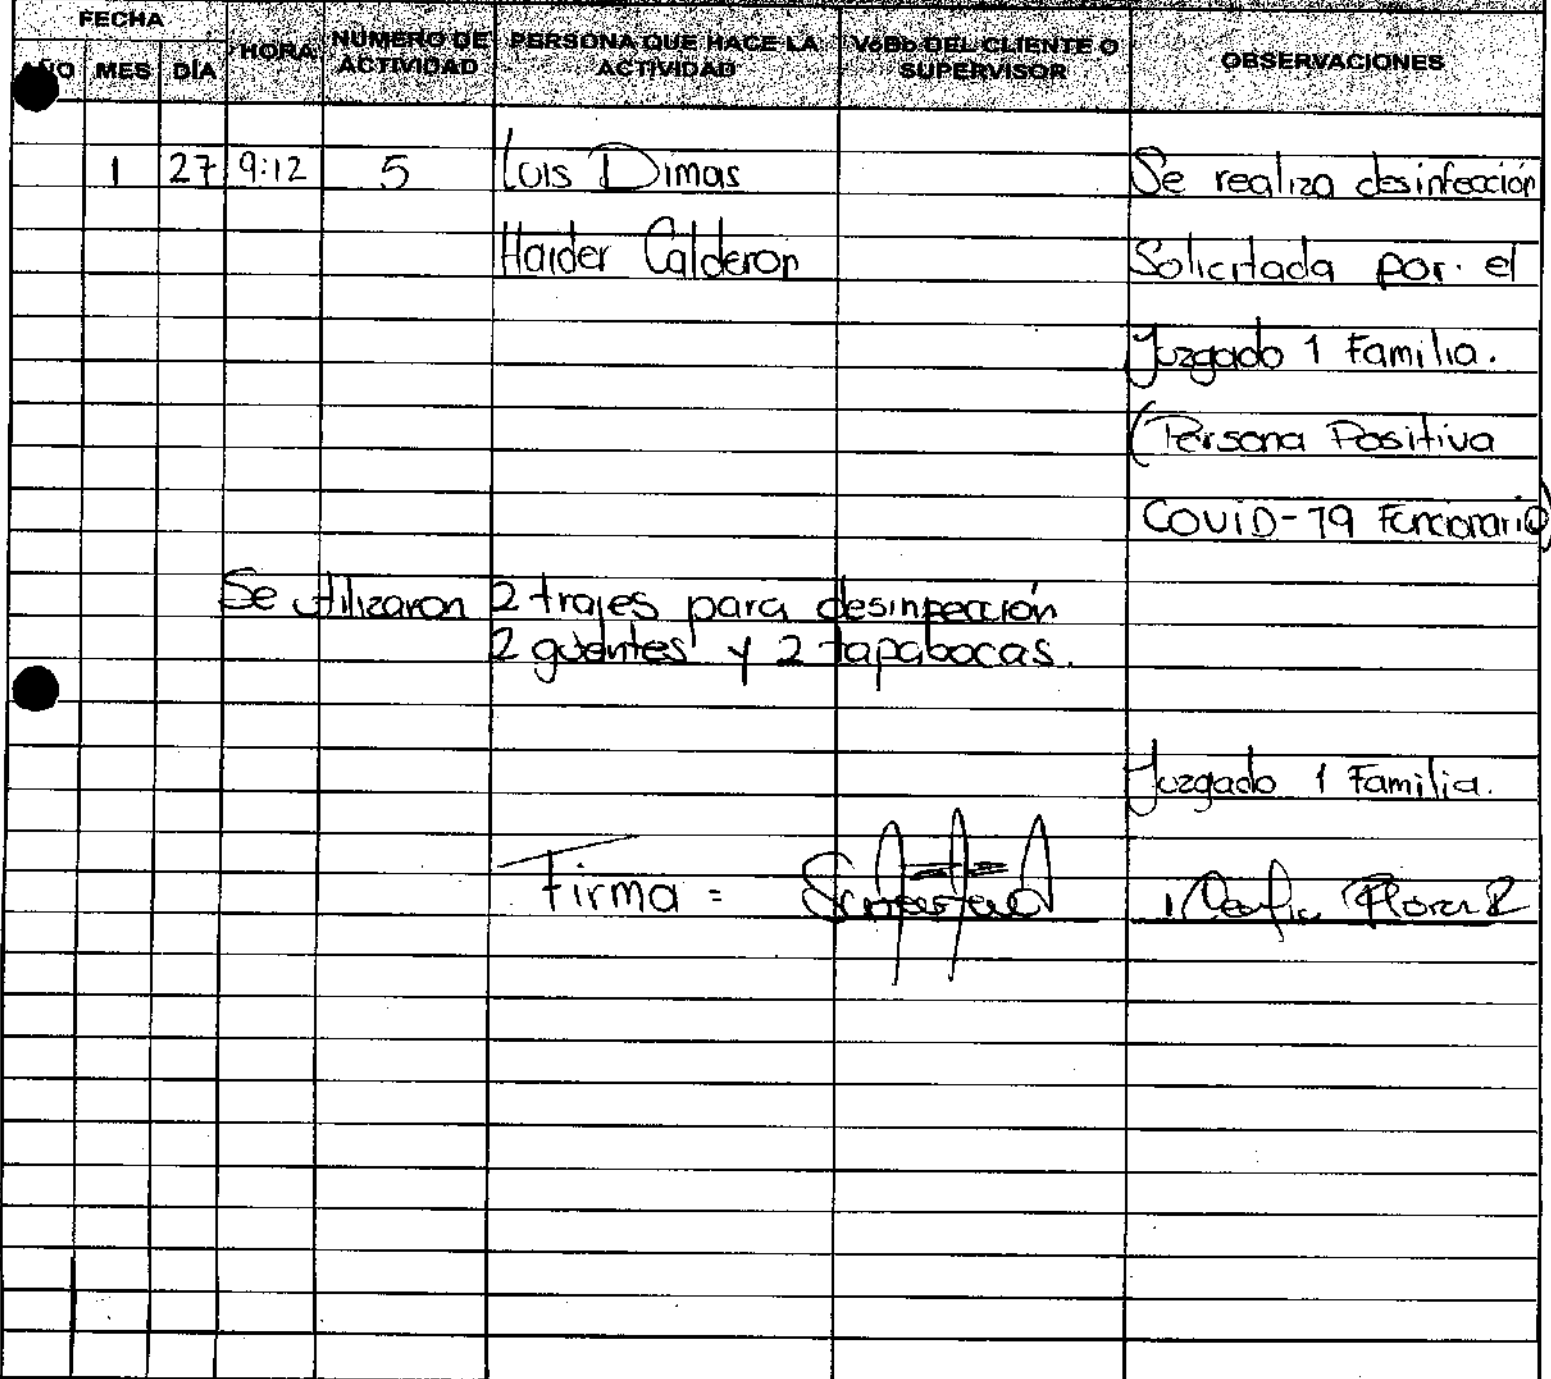 FECHA
AÑO MES DÍA HORA NUMERO DE ACTIVIDAD PERSONA QUE HACE LA ACTIVIDAD VoBo DEL CLIENTE O SUPERVISOR OBSERVACIONES
1 27 9:12 5 Luis Dimas Se realiza desinfección
Haider Calderon Solicitada por el
Juzgado 1 Familia.
(Persona Positiva
COVID-19 Funcionario)
Se utilizaron 2 trajes para desinfección
2 guantes y 2 tapabocas.
Juzgado 1 Familia.
Firma =